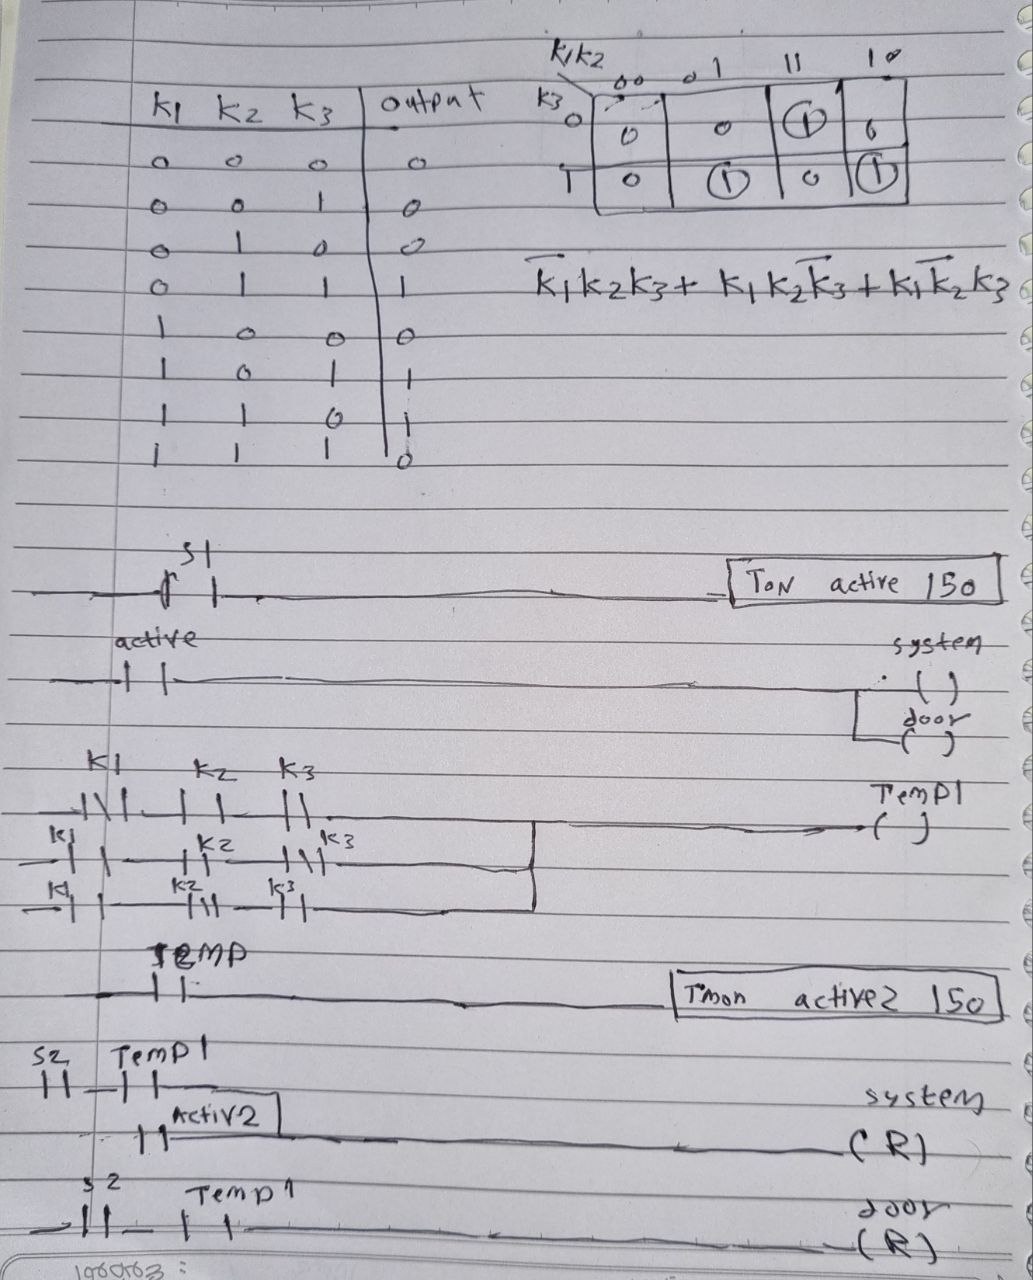 K1 K2 K3 output
0 0 0 0
0 0 1 0
0 1 0 0
0 1 1 1
1 0 0 0
1 0 1 1
1 1 0 1
1 1 1 0
K1K2
00 01 11 10
K3
0 0 0 1 0
1 0 1 0 1
K̅1K2K3 + K1K2K̅3 + K1K̅2K3
S1
TON active 150
active
system
door
K1 K2 K3
Temp1
K1 K2 K3
K1 K2 K3
TEMP
Tmon active2 150
S2 Temp1
system
Activ2
(R)
S2 Temp1
door
(R)